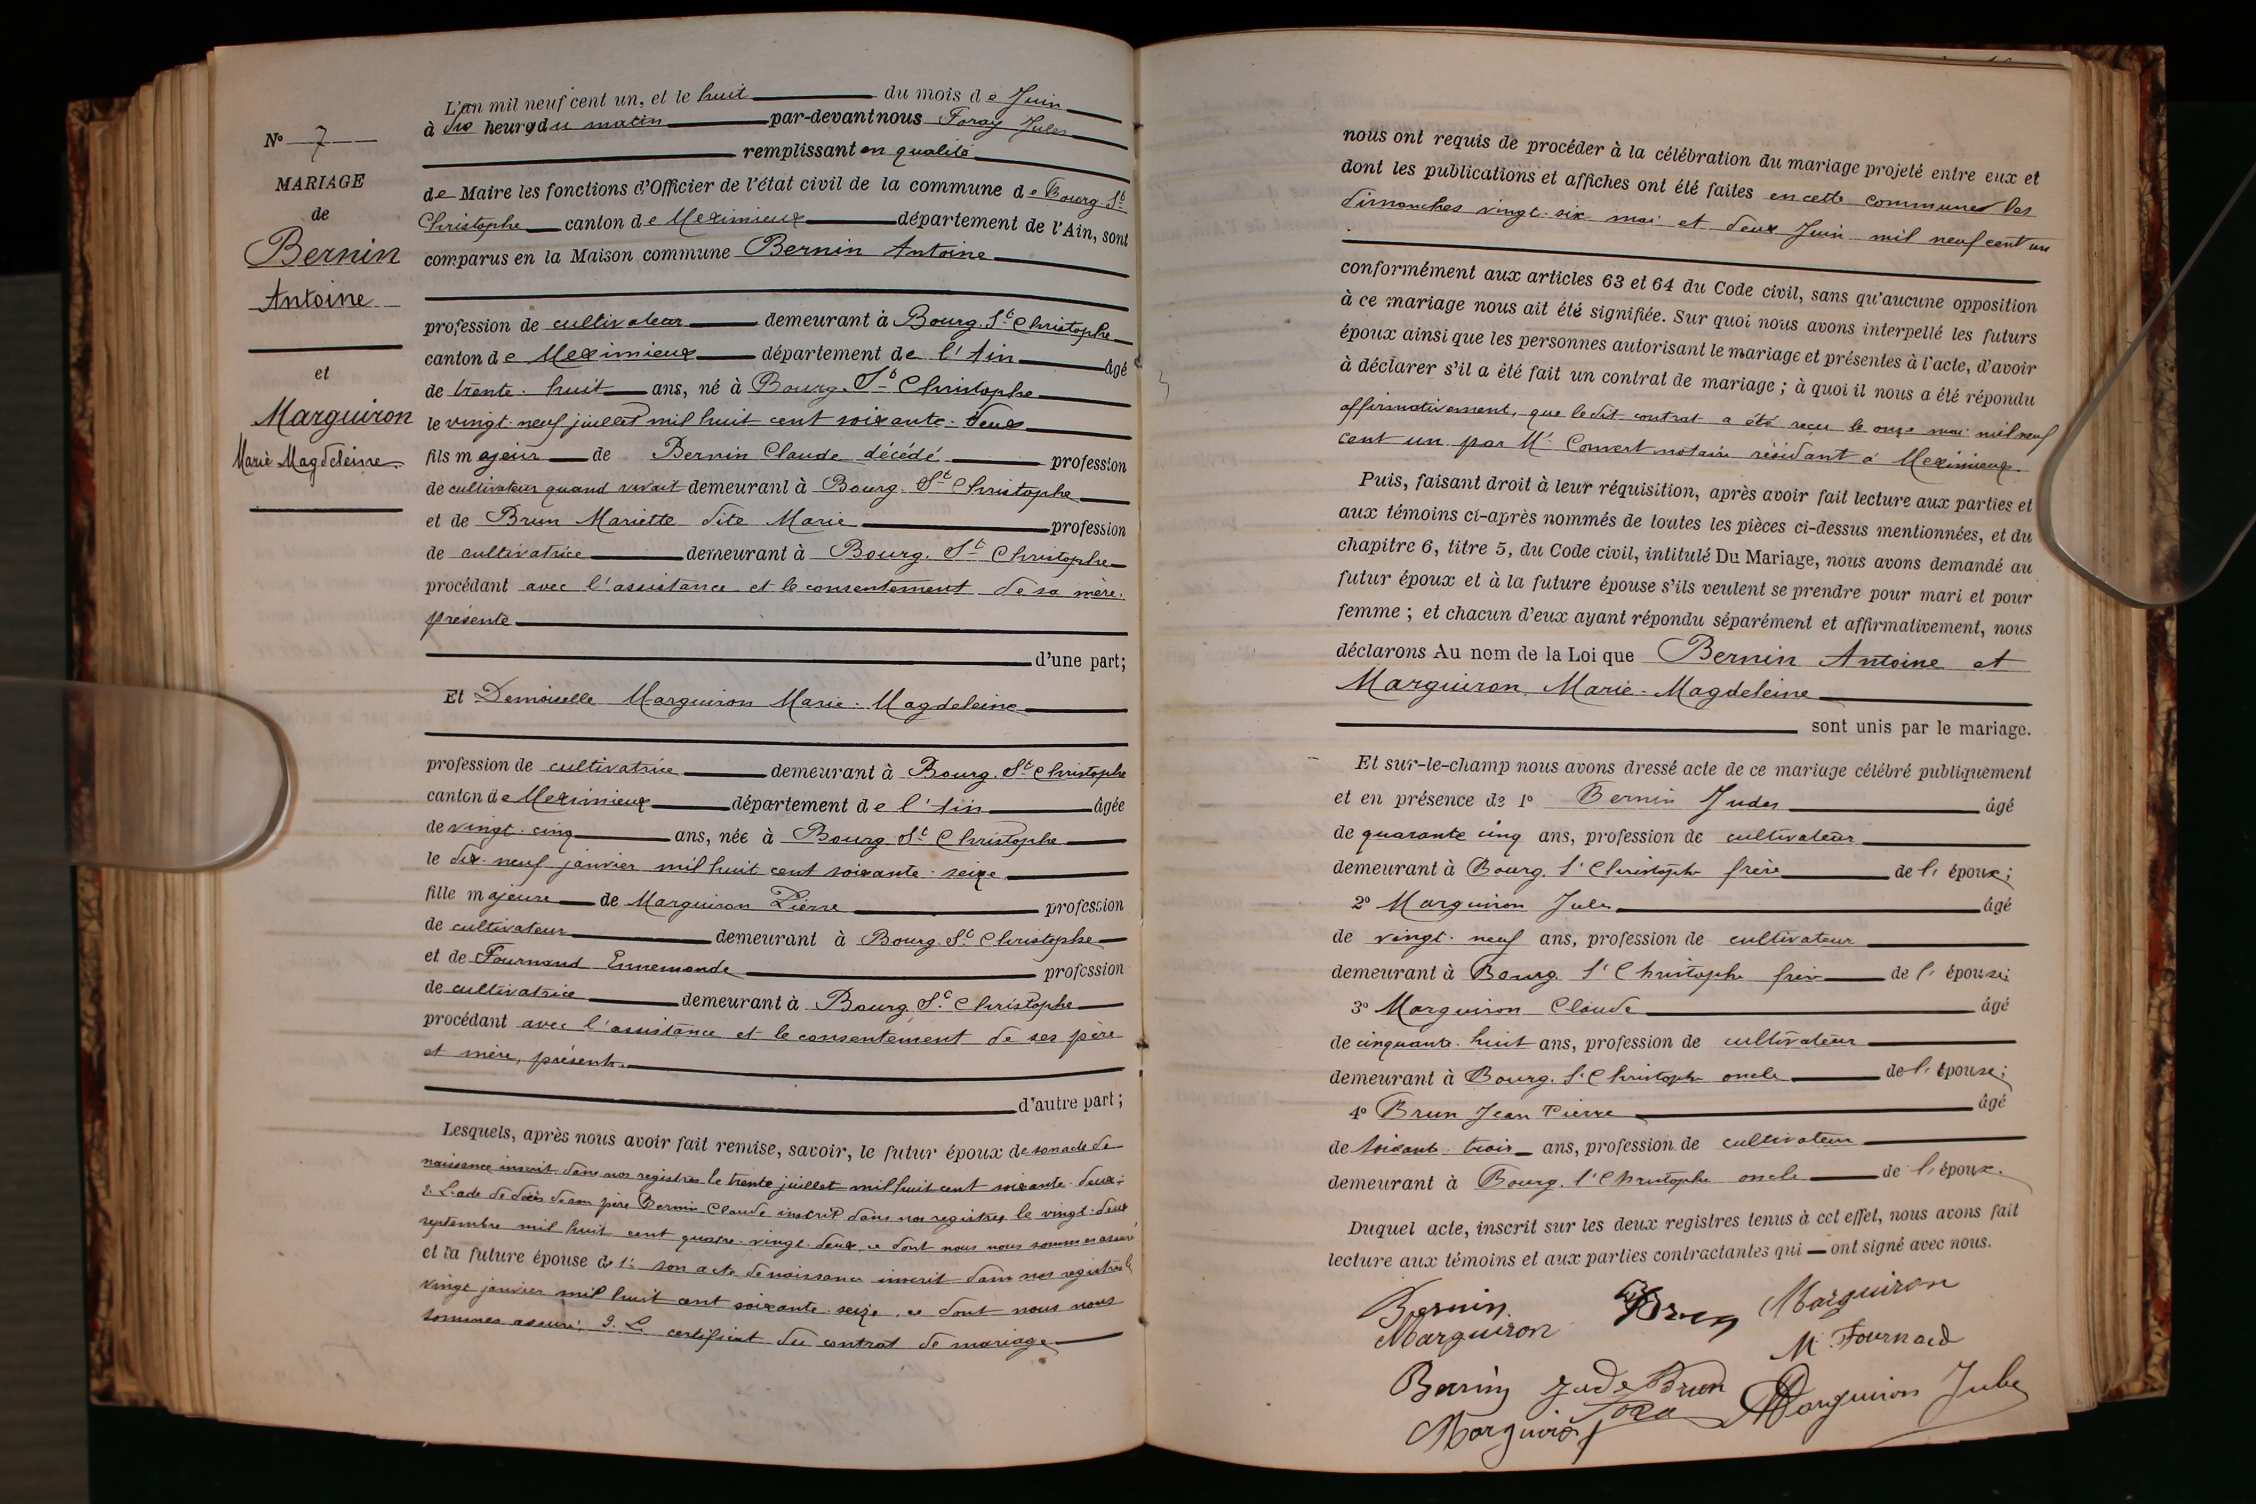 N° 7
MARIAGE
de
Bernin
Antoine
et
Marguiron
Marie Magdeleine
L'an mil neuf cent un, et le huit du mois de Juin
à dix heures du matin par-devant nous Foray Jules
remplissant en qualité
de Maire les fonctions d'Officier de l'état civil de la commune de Bourg-St
Christophe canton de Meximieux département de l'Ain, sont
comparus en la Maison commune Bernin Antoine
profession de cultivateur demeurant à Bourg. St Christophe
canton de Meximieux département de l'Ain âgé
de trente-huit ans, né à Bourg-St Christophe
le vingt-neuf juillet mil huit cent soixante-deux
fils majeur de Bernin Claude décédé profession
de cultivateur quand vivait demeurant à Bourg. St Christophe
et de Brun Mariette dite Marie profession
de cultivatrice demeurant à Bourg. St Christophe
procédant avec l'assistance et le consentement de sa mère,
présente
d'une part;
Et Demoiselle Marguiron Marie-Magdeleine
profession de cultivatrice demeurant à Bourg. St Christophe
canton de Meximieux département de l'Ain âgée
de vingt-cinq ans, née à Bourg St Christophe
le dix-neuf janvier mil huit cent soixante-seize
fille majeure de Marguiron Pierre profession
de cultivateur demeurant à Bourg. St Christophe
et de Fournand Ennemonde profession
de cultivatrice demeurant à Bourg. St Christophe
procédant avec l'assistance et le consentement de ses père
et mère, présents
d'autre part;
Lesquels, après nous avoir fait remise, savoir, le futur époux de son acte de
naissance inscrit dans nos registres le trente juillet mil huit cent soixante-deux;
2. L'acte de décès de son père Bernin Claude inscrit dans nos registres le vingt-deux
septembre mil huit cent quatre-vingt-deux, ce dont nous nous sommes assuré
et la future épouse de 1° son acte de naissance inscrit dans nos registres le
vingt janvier mil huit cent soixante-seize, ce dont nous nous
sommes assuré; 2. Le certificat du contrat de mariage
nous ont requis de procéder à la célébration du mariage projeté entre eux et
dont les publications et affiches ont été faites en cette commune les
dimanches vingt-six mai et deux Juin mil neuf cent un
conformément aux articles 63 et 64 du Code civil, sans qu'aucune opposition
à ce mariage nous ait été signifiée. Sur quoi nous avons interpellé les futurs
époux ainsi que les personnes autorisant le mariage et présentes à l'acte, d'avoir
à déclarer s'il a été fait un contrat de mariage; à quoi il nous a été répondu
affirmativement, que ledit contrat a été reçu le onze mai mil neuf
cent un par Me Convert notaire résidant à Meximieux
Puis, faisant droit à leur réquisition, après avoir fait lecture aux parties et
aux témoins ci-après nommés de toutes les pièces ci-dessus mentionnées, et du
chapitre 6, titre 5, du Code civil, intitulé Du Mariage, nous avons demandé au
futur époux et à la future épouse s'ils veulent se prendre pour mari et pour
femme; et chacun d'eux ayant répondu séparément et affirmativement, nous
déclarons Au nom de la Loi que Bernin Antoine et
Marguiron Marie-Magdeleine
sont unis par le mariage.
Et sur-le-champ nous avons dressé acte de ce mariage célébré publiquement
et en présence de 1° Bernin Judes âgé
de quarante cinq ans, profession de cultivateur
demeurant à Bourg. St Christophe frère de l'époux;
2° Marguiron Jules âgé
de vingt-neuf ans, profession de cultivateur
demeurant à Bourg. St Christophe frère de l'épouse;
3° Marguiron Claude âgé
de cinquante-huit ans, profession de cultivateur
demeurant à Bourg. St Christophe oncle de l'épouse;
4° Brun Jean Pierre âgé
de soixante-trois ans, profession de cultivateur
demeurant à Bourg. St Christophe oncle de l'époux.
Duquel acte, inscrit sur les deux registres tenus à cet effet, nous avons fait
lecture aux témoins et aux parties contractantes qui ont signé avec nous.
Bernin Brun Marguiron
Marguiron M. Fournand
Bernin Jude Brun Marguiron Jules
Marguiron Foray